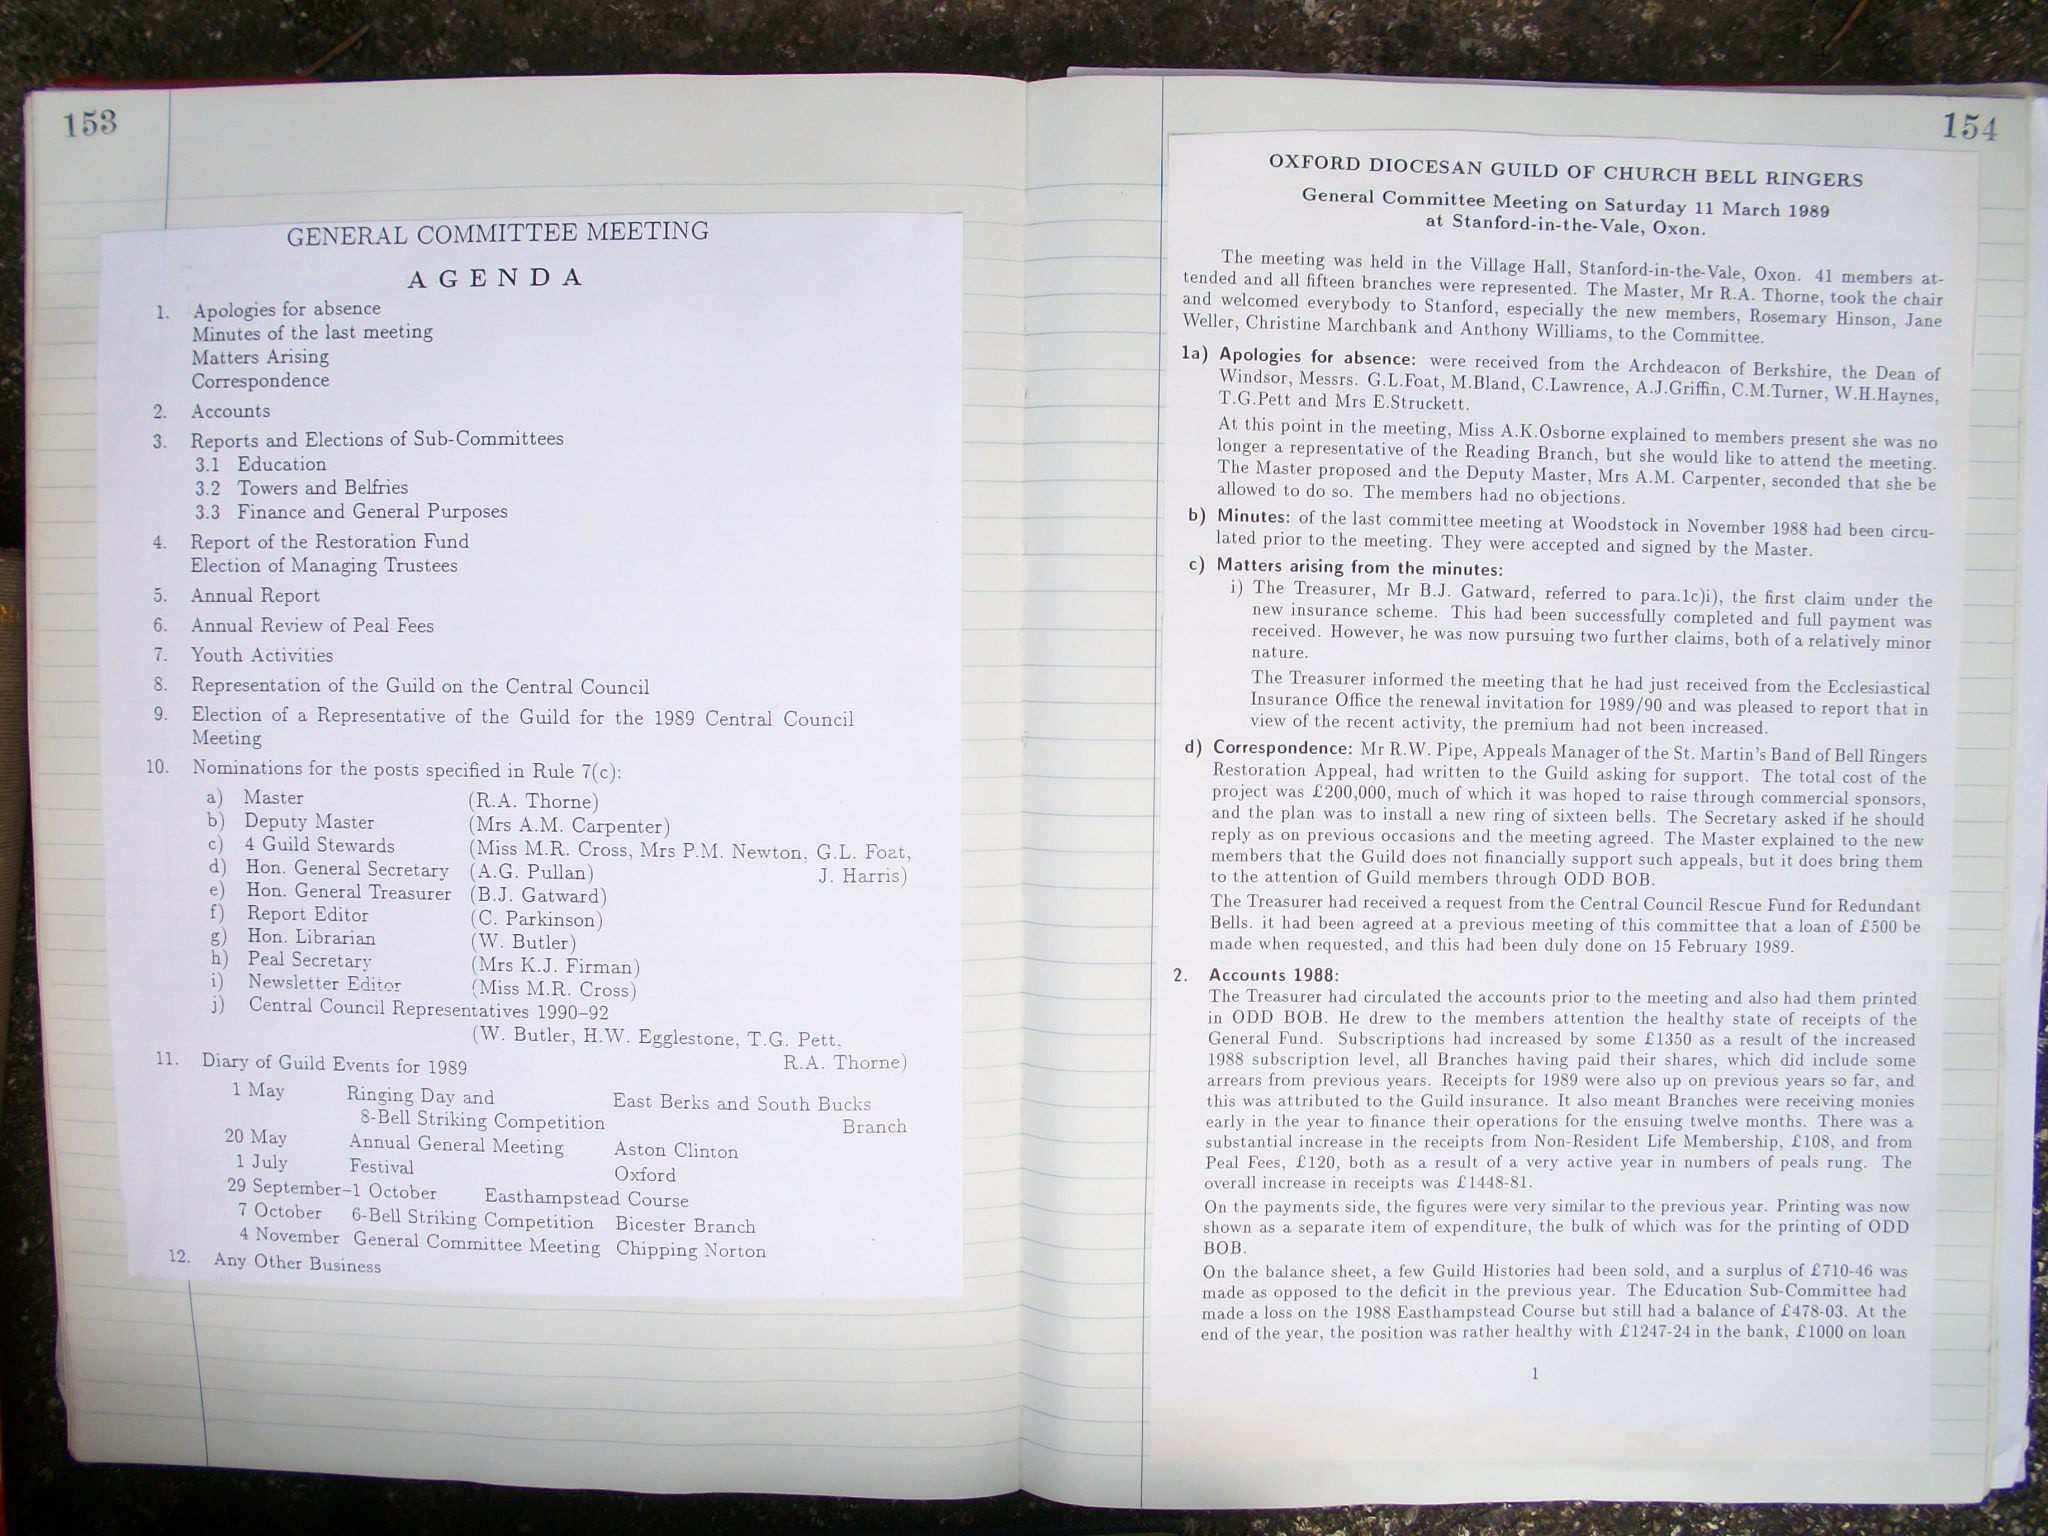 153
GENERAL COMMITTEE MEETING
AGENDA
1. Apologies for absence
Minutes of the last meeting
Matters Arising
Correspondence
2. Accounts
3. Reports and Elections of Sub-Committees
3.1 Education
3.2 Towers and Belfries
3.3 Finance and General Purposes
4. Report of the Restoration Fund
Election of Managing Trustees
5. Annual Report
6. Annual Review of Peal Fees
7. Youth Activities
8. Representation of the Guild on the Central Council
9. Election of a Representative of the Guild for the 1989 Central Council
Meeting
10. Nominations for the posts specified in Rule 7(c):
a) Master (R.A. Thorne)
b) Deputy Master (Mrs A.M. Carpenter)
c) 4 Guild Stewards (Miss M.R. Cross, Mrs P.M. Newton, G.L. Foat,
J. Harris)
d) Hon. General Secretary (A.G. Pullan)
e) Hon. General Treasurer (B.J. Gatward)
f) Report Editor (C. Parkinson)
g) Hon. Librarian (W. Butler)
h) Peal Secretary (Mrs K.J. Firman)
i) Newsletter Editor (Miss M.R. Cross)
j) Central Council Representatives 1990–92
(W. Butler, H.W. Egglestone, T.G. Pett,
R.A. Thorne)
11. Diary of Guild Events for 1989
1 May Ringing Day and East Berks and South Bucks
8-Bell Striking Competition Branch
20 May Annual General Meeting Aston Clinton
1 July Festival Oxford
29 September–1 October Easthampstead Course
7 October 6-Bell Striking Competition Bicester Branch
4 November General Committee Meeting Chipping Norton
12. Any Other Business
154
OXFORD DIOCESAN GUILD OF CHURCH BELL RINGERS
General Committee Meeting on Saturday 11 March 1989
at Stanford-in-the-Vale, Oxon.
The meeting was held in the Village Hall, Stanford-in-the-Vale, Oxon. 41 members at-
tended and all fifteen branches were represented. The Master, Mr R.A. Thorne, took the chair
and welcomed everybody to Stanford, especially the new members, Rosemary Hinson, Jane
Weller, Christine Marchbank and Anthony Williams, to the Committee.
1a) Apologies for absence: were received from the Archdeacon of Berkshire, the Dean of
Windsor, Messrs. G.L.Foat, M.Bland, C.Lawrence, A.J.Griffin, C.M.Turner, W.H.Haynes,
T.G.Pett and Mrs E.Struckett.
At this point in the meeting, Miss A.K.Osborne explained to members present she was no
longer a representative of the Reading Branch, but she would like to attend the meeting.
The Master proposed and the Deputy Master, Mrs A.M. Carpenter, seconded that she be
allowed to do so. The members had no objections.
b) Minutes: of the last committee meeting at Woodstock in November 1988 had been circu-
lated prior to the meeting. They were accepted and signed by the Master.
c) Matters arising from the minutes:
i) The Treasurer, Mr B.J. Gatward, referred to para.1c)i), the first claim under the
new insurance scheme. This had been successfully completed and full payment was
received. However, he was now pursuing two further claims, both of a relatively minor
nature.
The Treasurer informed the meeting that he had just received from the Ecclesiastical
Insurance Office the renewal invitation for 1989/90 and was pleased to report that in
view of the recent activity, the premium had not been increased.
d) Correspondence: Mr R.W. Pipe, Appeals Manager of the St. Martin's Band of Bell Ringers
Restoration Appeal, had written to the Guild asking for support. The total cost of the
project was £200,000, much of which it was hoped to raise through commercial sponsors,
and the plan was to install a new ring of sixteen bells. The Secretary asked if he should
reply as on previous occasions and the meeting agreed. The Master explained to the new
members that the Guild does not financially support such appeals, but it does bring them
to the attention of Guild members through ODD BOB.
The Treasurer had received a request from the Central Council Rescue Fund for Redundant
Bells. it had been agreed at a previous meeting of this committee that a loan of £500 be
made when requested, and this had been duly done on 15 February 1989.
2. Accounts 1988:
The Treasurer had circulated the accounts prior to the meeting and also had them printed
in ODD BOB. He drew to the members attention the healthy state of receipts of the
General Fund. Subscriptions had increased by some £1350 as a result of the increased
1988 subscription level, all Branches having paid their shares, which did include some
arrears from previous years. Receipts for 1989 were also up on previous years so far, and
this was attributed to the Guild insurance. It also meant Branches were receiving monies
early in the year to finance their operations for the ensuing twelve months. There was a
substantial increase in the receipts from Non-Resident Life Membership, £108, and from
Peal Fees, £120, both as a result of a very active year in numbers of peals rung. The
overall increase in receipts was £1448-81.
On the payments side, the figures were very similar to the previous year. Printing was now
shown as a separate item of expenditure, the bulk of which was for the printing of ODD
BOB.
On the balance sheet, a few Guild Histories had been sold, and a surplus of £710-46 was
made as opposed to the deficit in the previous year. The Education Sub-Committee had
made a loss on the 1988 Easthampstead Course but still had a balance of £478-03. At the
end of the year, the position was rather healthy with £1247-24 in the bank, £1000 on loan
1